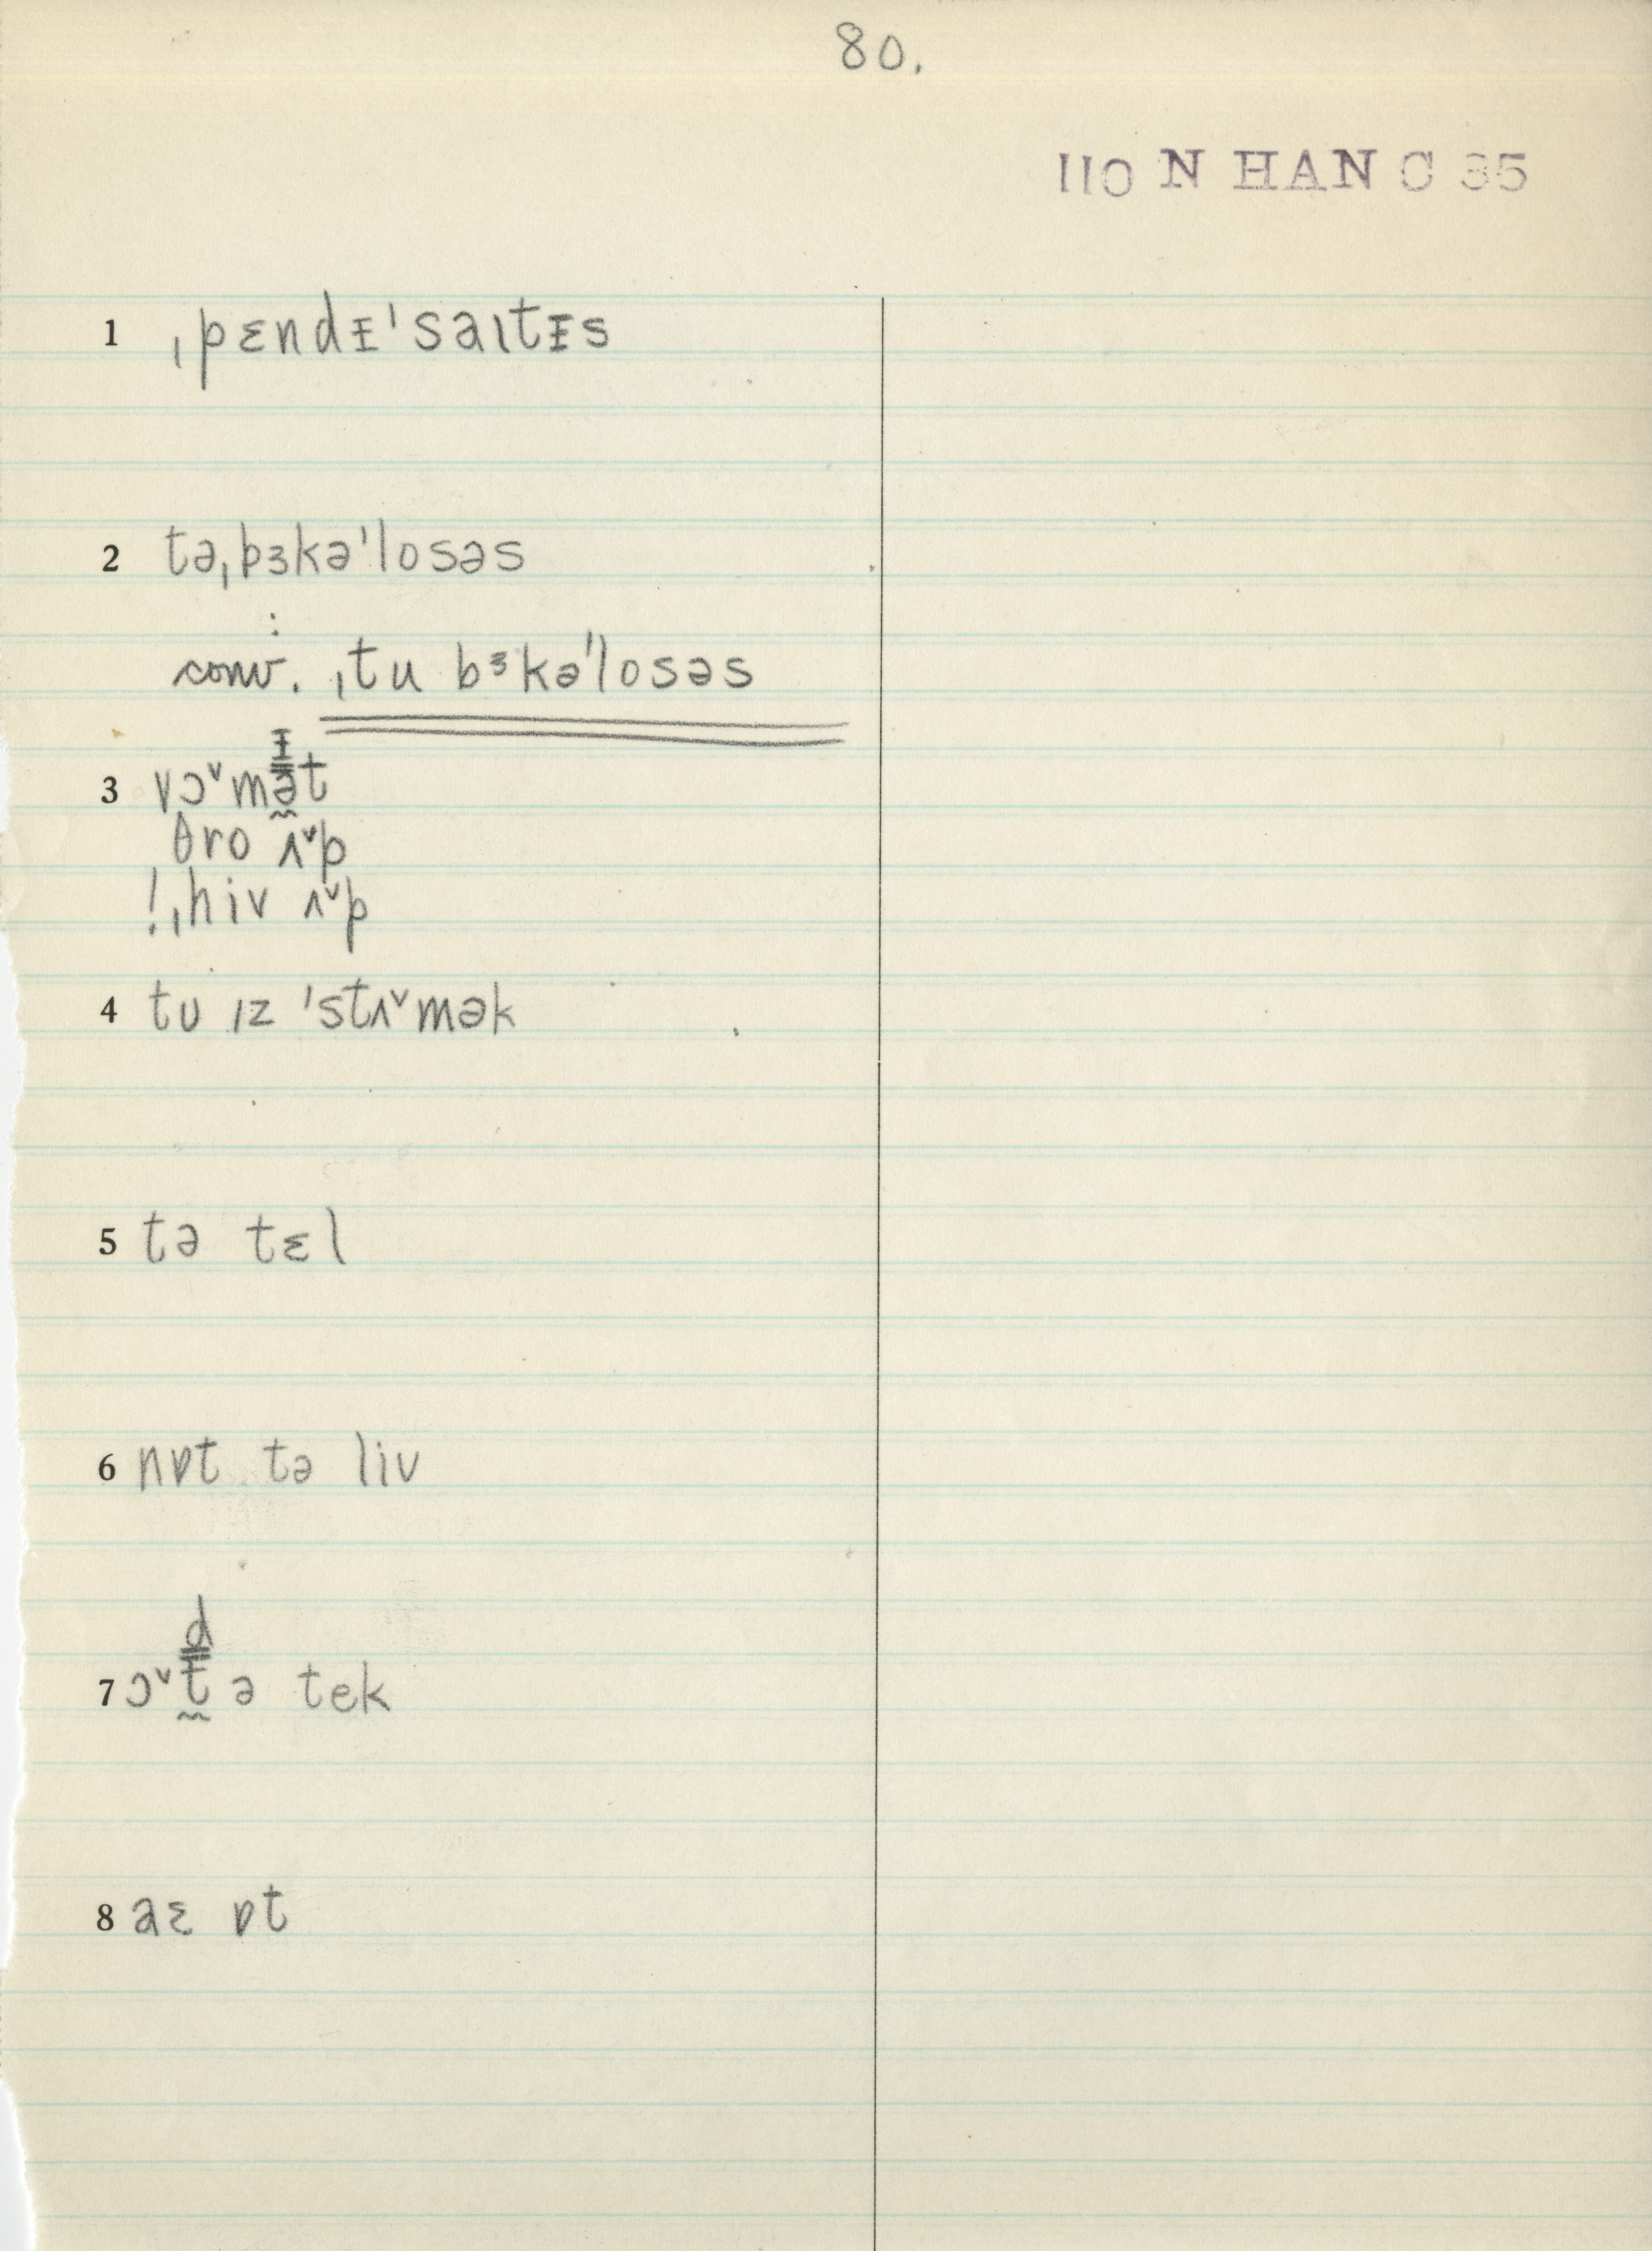 80.
110 N HAN C 35
1 ˌpɛndᵻˈsaɪtᵻs
2 təˌbɜkəˈlosəs
: conv. ˌtu bᶟkəˈlosəs
ᵻ
3 vɔ˅mət
θro ʌ˅p
!ˌhiv ʌ˅p
4 tʊ ɪz ˈstʌ˅mək
5 tə tɛl
6 nɒt tə liv
d
7 ɔ˅t ə tek
8 aɛ ɒt